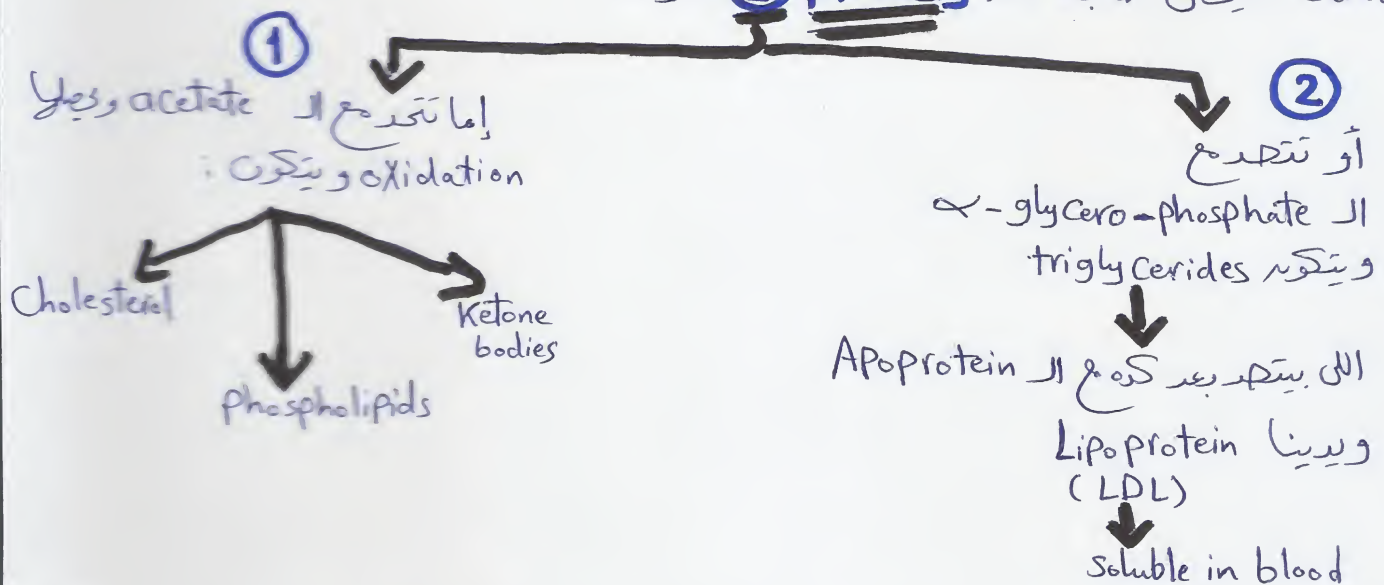 ①
إما تتحد مع الـ acetate ويحصل
oxidation ويتكون :
Cholesterol
Phospholipids
Ketone
bodies
②
أو تتحد مع
الـ α-glycero-phosphate
ويتكون triglycerides
اللى بيتحد بعد كده مع الـ Apoprotein
ويدينا Lipoprotein
(LDL)
Soluble in blood